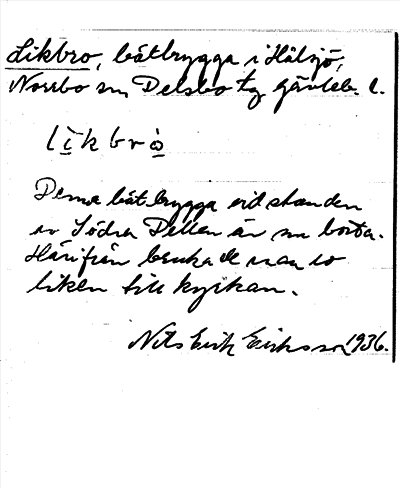 Likbro, båtbrygga i Hålsjö,
Norrbo sn Delsbo tg Gävleb. l.
līkbrò
Denna båtbrygga vid stranden
av Södra Dellen är nu borta.
Härifrån brukade man ro
liken till kyrkan.
Nils Erik Eriksson 1936.